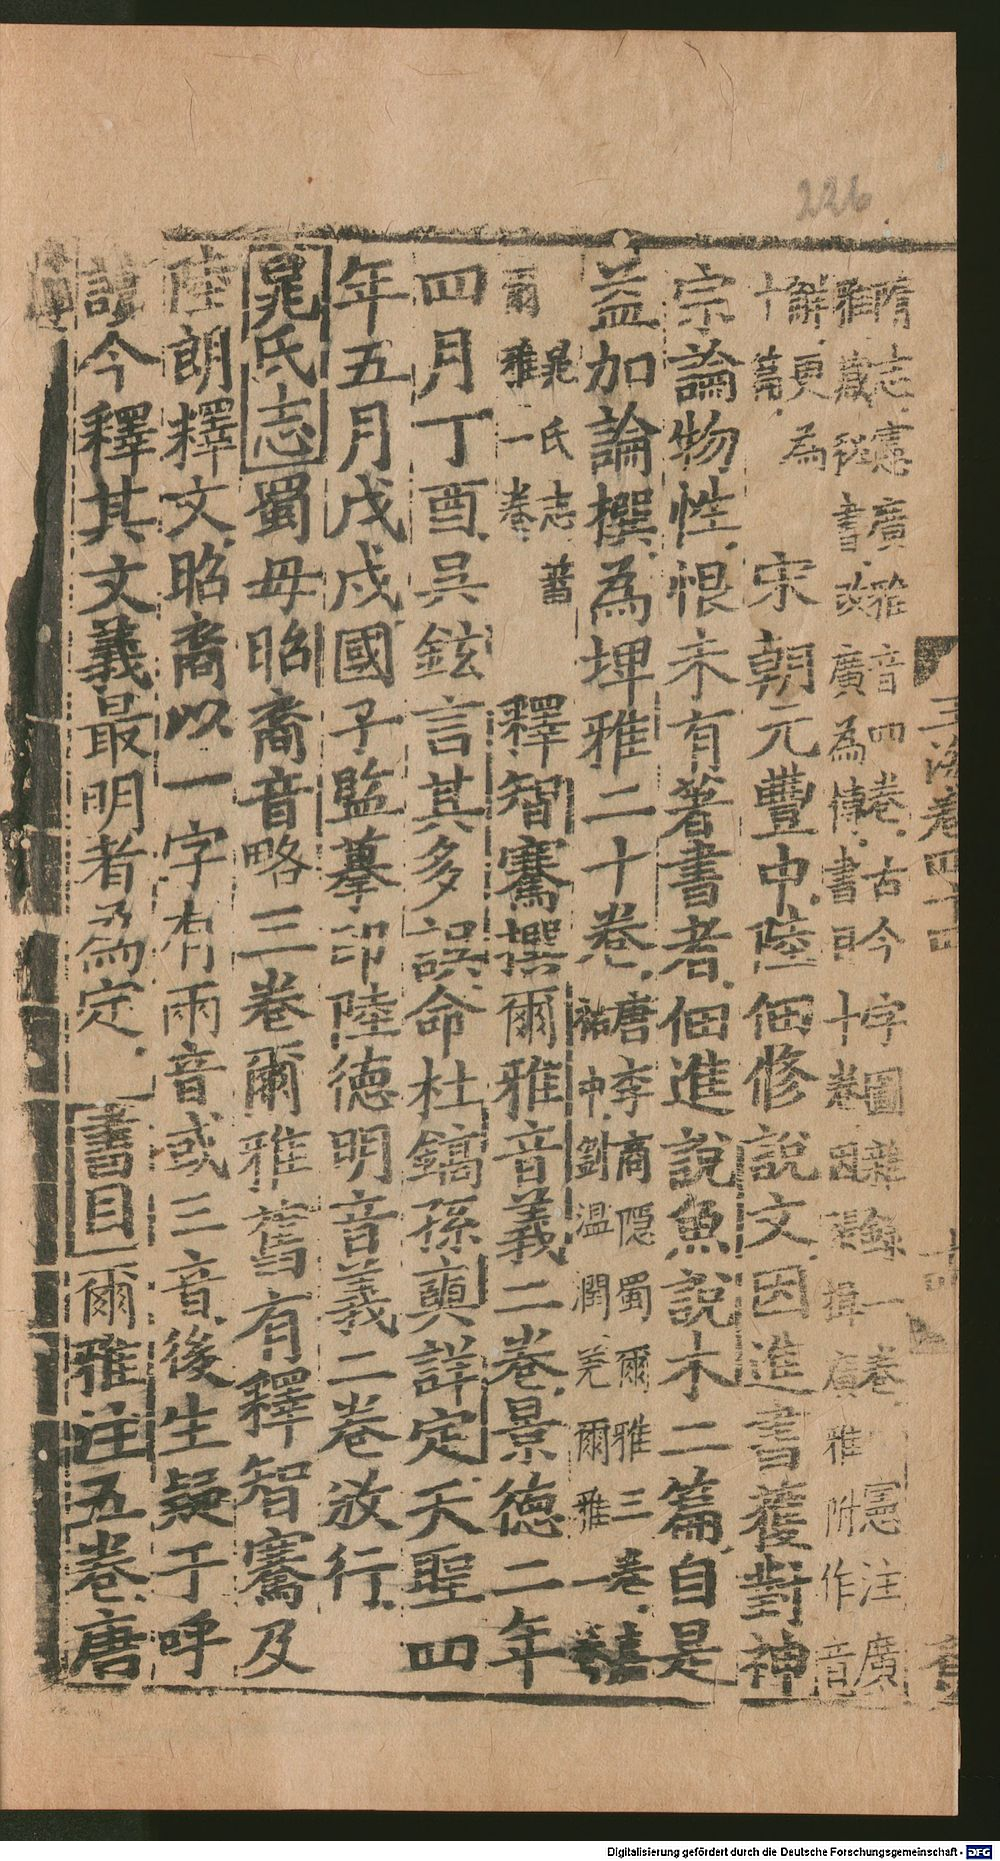 226
玉海卷四十四
隋志憲廣雅音四卷古今字圖雜錄一卷憲注廣
雅藏秘書改廣為博書目十卷因張揖廣雅附作音
解更為
十篇
宋朝元豐中陸佃修說文因進書獲對神
宗論物性恨未有著書者佃進說魚說木二篇自是
益加論撰為埤雅二十卷
唐李商隱蜀爾雅三卷嘉
祐中劉溫潤羌爾雅一卷
晁氏志昔
爾雅一卷
釋智騫撰爾雅音義二卷景德二年
四月丁酉吳鉉言其多誤命杜鎬孫奭詳定天聖四
年五月戊戌國子監摹印陸德明音義二卷放行
晁氏志蜀毋昭裔音略三卷爾雅舊有釋智騫及
陸朗釋文昭裔以一字有兩音或三音後生疑于呼
讀今釋其文義最明者為定 書目爾雅注五卷唐
Digitalisierung gefördert durch die Deutsche Forschungsgemeinschaft - DFG